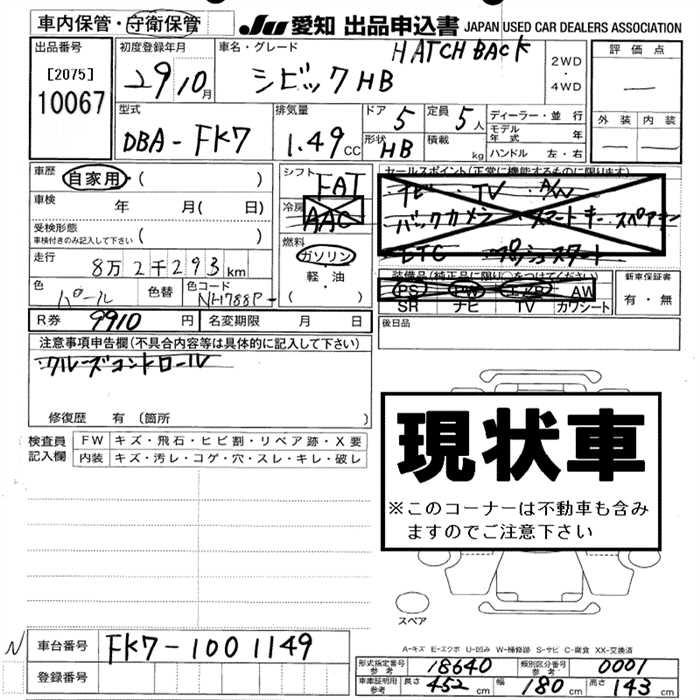 車内保管・守衛保管 JU 愛知 出品申込書 JAPAN USED CAR DEALERS ASSOCIATION
出品番号 初度登録年月 車名・グレード HATCH BACK 評価点
[2075] 29 10月 シビック HB 2WD・4WD ―
10067
型式 排気量 ドア 5 定員 5人 ディーラー・並行 外装 内装
DBA-FK7 1.49CC 形状 HB 積載 kg モデル年式 年 ― ―
ハンドル 左・右
車歴 自家用・( ) シフト FAT セールスポイント(正常に機能するものに限ります)
車検 年 月( 日) 冷房 AAC ナビ・TV・A/W
受検形態 車検付きのみ記入して下さい ( ) 燃料 バックカメラ スマートキー・スペアキー
走行 8万2千293km ガソリン ETC プッシュスタート
軽・油 装備品(純正品に限り○をつけてください) 新車保証書
色 パール 色替 色コード NH788P- ( ) PS AW 有・無
SR ナビ TV カワシート
R券 9910円 名変期限 月 日 後日品
注意事項申告欄(不具合内容等は具体的に記入して下さい)
クルーズコントロール
修復歴 有(箇所 )
検査員記入欄 FW キズ・飛石・ヒビ割・リペア跡・X要
内装 キズ・汚レ・コゲ・穴・スレ・キレ・破レ
現状車
※このコーナーは不動車も含み
ますのでご注意下さい
スペア
A-キズ E-エクボ U-凹み W-補修跡 S-サビ C-腐食 XX-交換済
N 車台番号 FK7-1001149 形式指定番号 参考 18640 類別区分番号 参考 0001
登録番号 車庫証明用 参考 長さ 452cm 幅 180cm 高さ 143cm